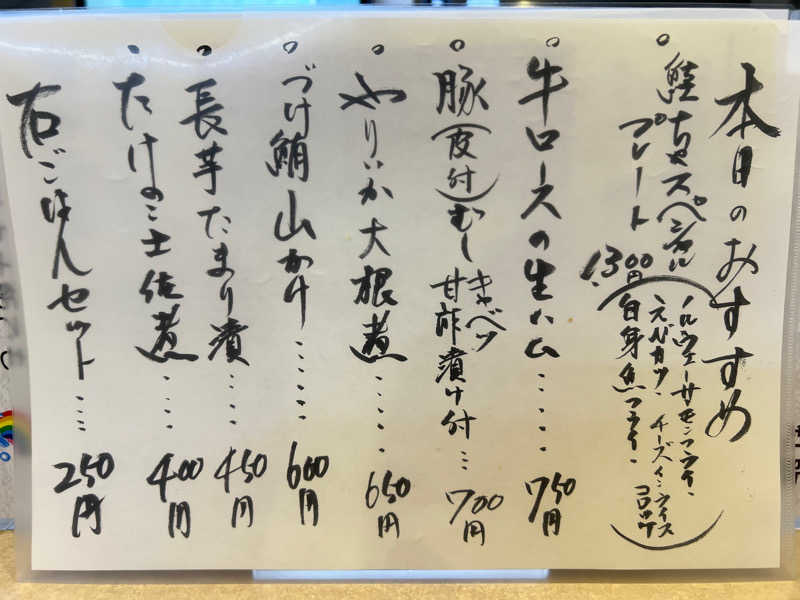 本日のおすすめ
。鮭ちゃスペシャル
プレート
1,300円
(ノルウェーサーモンフライ、
えびカツ、チーズインライス
コロッケ
白身魚フライ、)
。牛ロースの生ハム・・・・・750円
。豚(皮付)むし キャベツ
甘酢漬け付・・・700円
。やりいか大根煮・・・・・650円
。づけ鮪山かけ・・・・・・600円
。長芋たまり漬・・・・・450円
。たけのこ土佐煮・・・・400円
右ごはんセット・・・・250円